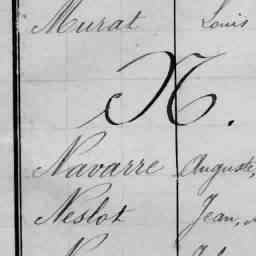 Murat Louis
N.
Navarre Auguste,
Neslot Jean,